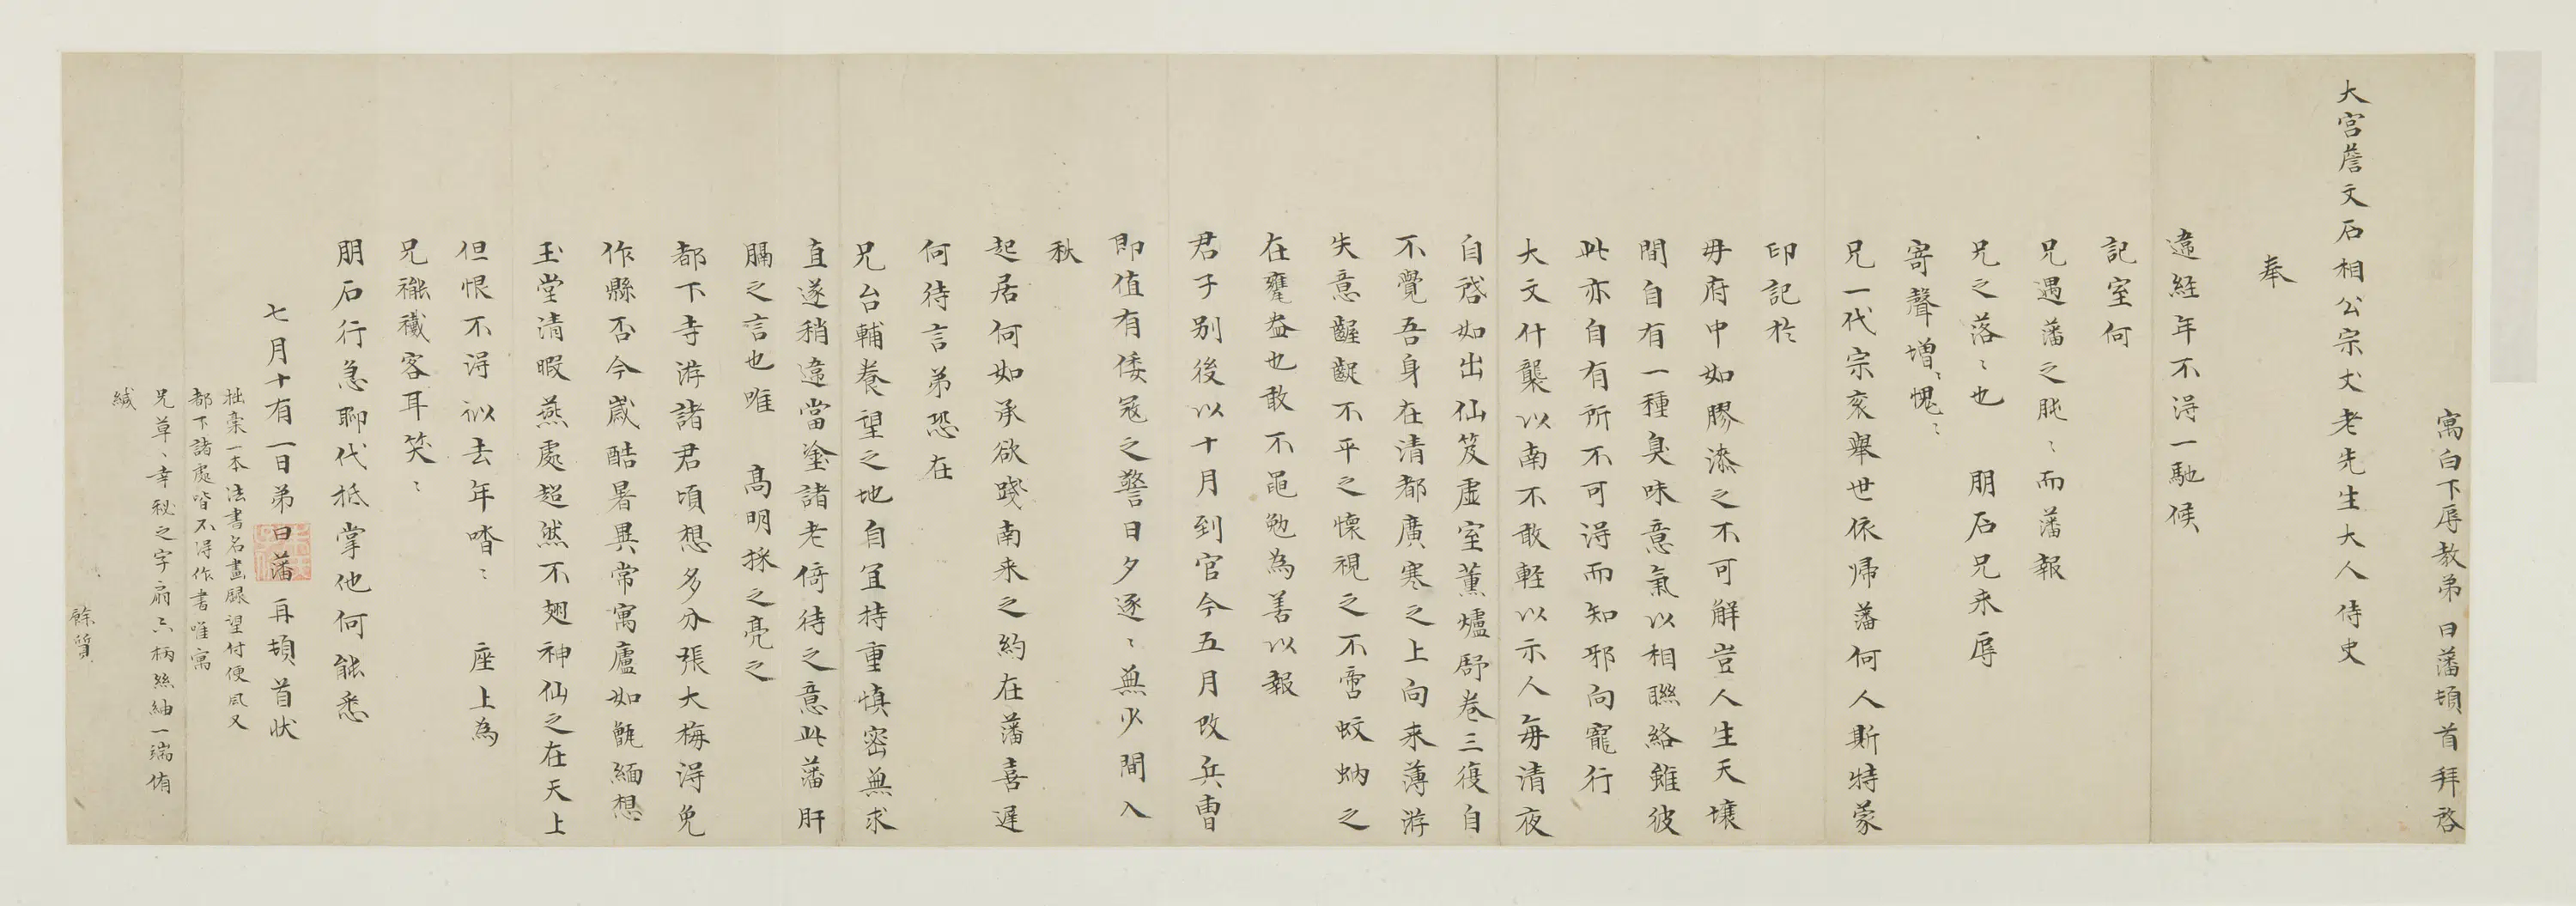 寓白下辱教弟曰藩頓首拜啓
大宮詹文石相公宗丈老先生大人侍史
奉
違経年不淂一馳候
記室何
兄遇藩之肫〻而藩報
兄之落〻也　朋石兄来辱
寄聲增〻愧〻
兄一代宗亥舉世依帰藩何人斯特蒙
印記於
毋府中如膠漆之不可解豈人生天壤
間自有一種臭味意氣以相聮絡雖彼
此亦自有所不可淂而知邪向寵行
大文什襲以南不敢輕以示人每清夜
自啓如出仙笈虛室薰爐舒卷三復自
不覺吾身在清都廣寒之上向来薄游
失意齷齪不平之懷視之不啻蚊蚋之
在甕盎也敢不黽勉為善以報
君子别後以十月到官今五月改兵曹
即值有倭寇之警日夕逐〻無少間入
秋
起居何如承欲踐南来之約在藩喜遲
何待言弟恐在
兄台輔養望之地自宜持重慎密無求
直遂稍違當塗諸老倚待之意此藩肝
膈之言也唯　高明採之亮之
都下寺游諸君頃想多分張大梅淂免
作縣否今歲酷暑異常寓廬如甑緬想
玉堂清暇燕處超然不翅神仙之在天上
但恨不淂似去年喒〻　座上為
兄褦襶客耳笑〻
朋石行急聊代抵掌他何能悉
七月十有一日弟曰藩再頓首状
拙藁一本法書名畫腿望付便風又
都下諸處喒不淂作書唯寓
兄草〻幸秘之字扇六柄絲紬一端侑
緘
餘質